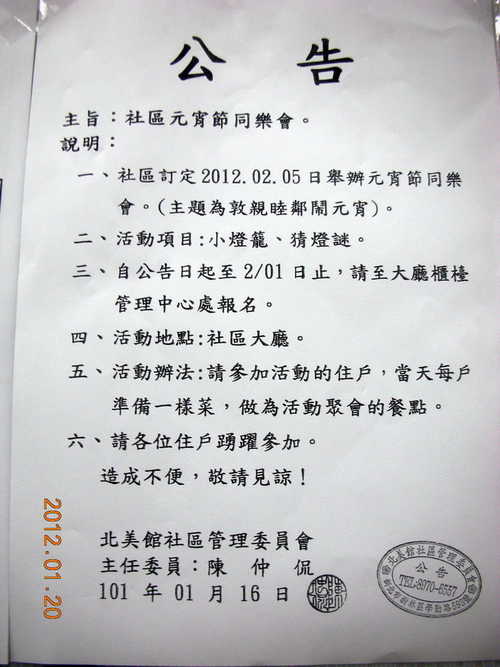 公 告
主旨：社區元宵節同樂會。
說明：
一、社區訂定2012.02.05日舉辦元宵節同樂
會。(主題為敦親睦鄰鬧元宵)。
二、活動項目:小燈籠、猜燈謎。
三、自公告日起至2/01日止，請至大廳櫃檯
管理中心處報名。
四、活動地點:社區大廳。
五、活動辦法:請參加活動的住戶，當天每戶
準備一樣菜，做為活動聚會的餐點。
六、請各位住戶踴躍參加。
造成不便，敬請見諒!
北美館社區管理委員會
主任委員：陳 仲 侃
101 年 01 月 16 日
北美館社區管理委員會
公告
TEL:8970-6557
2012.01.20